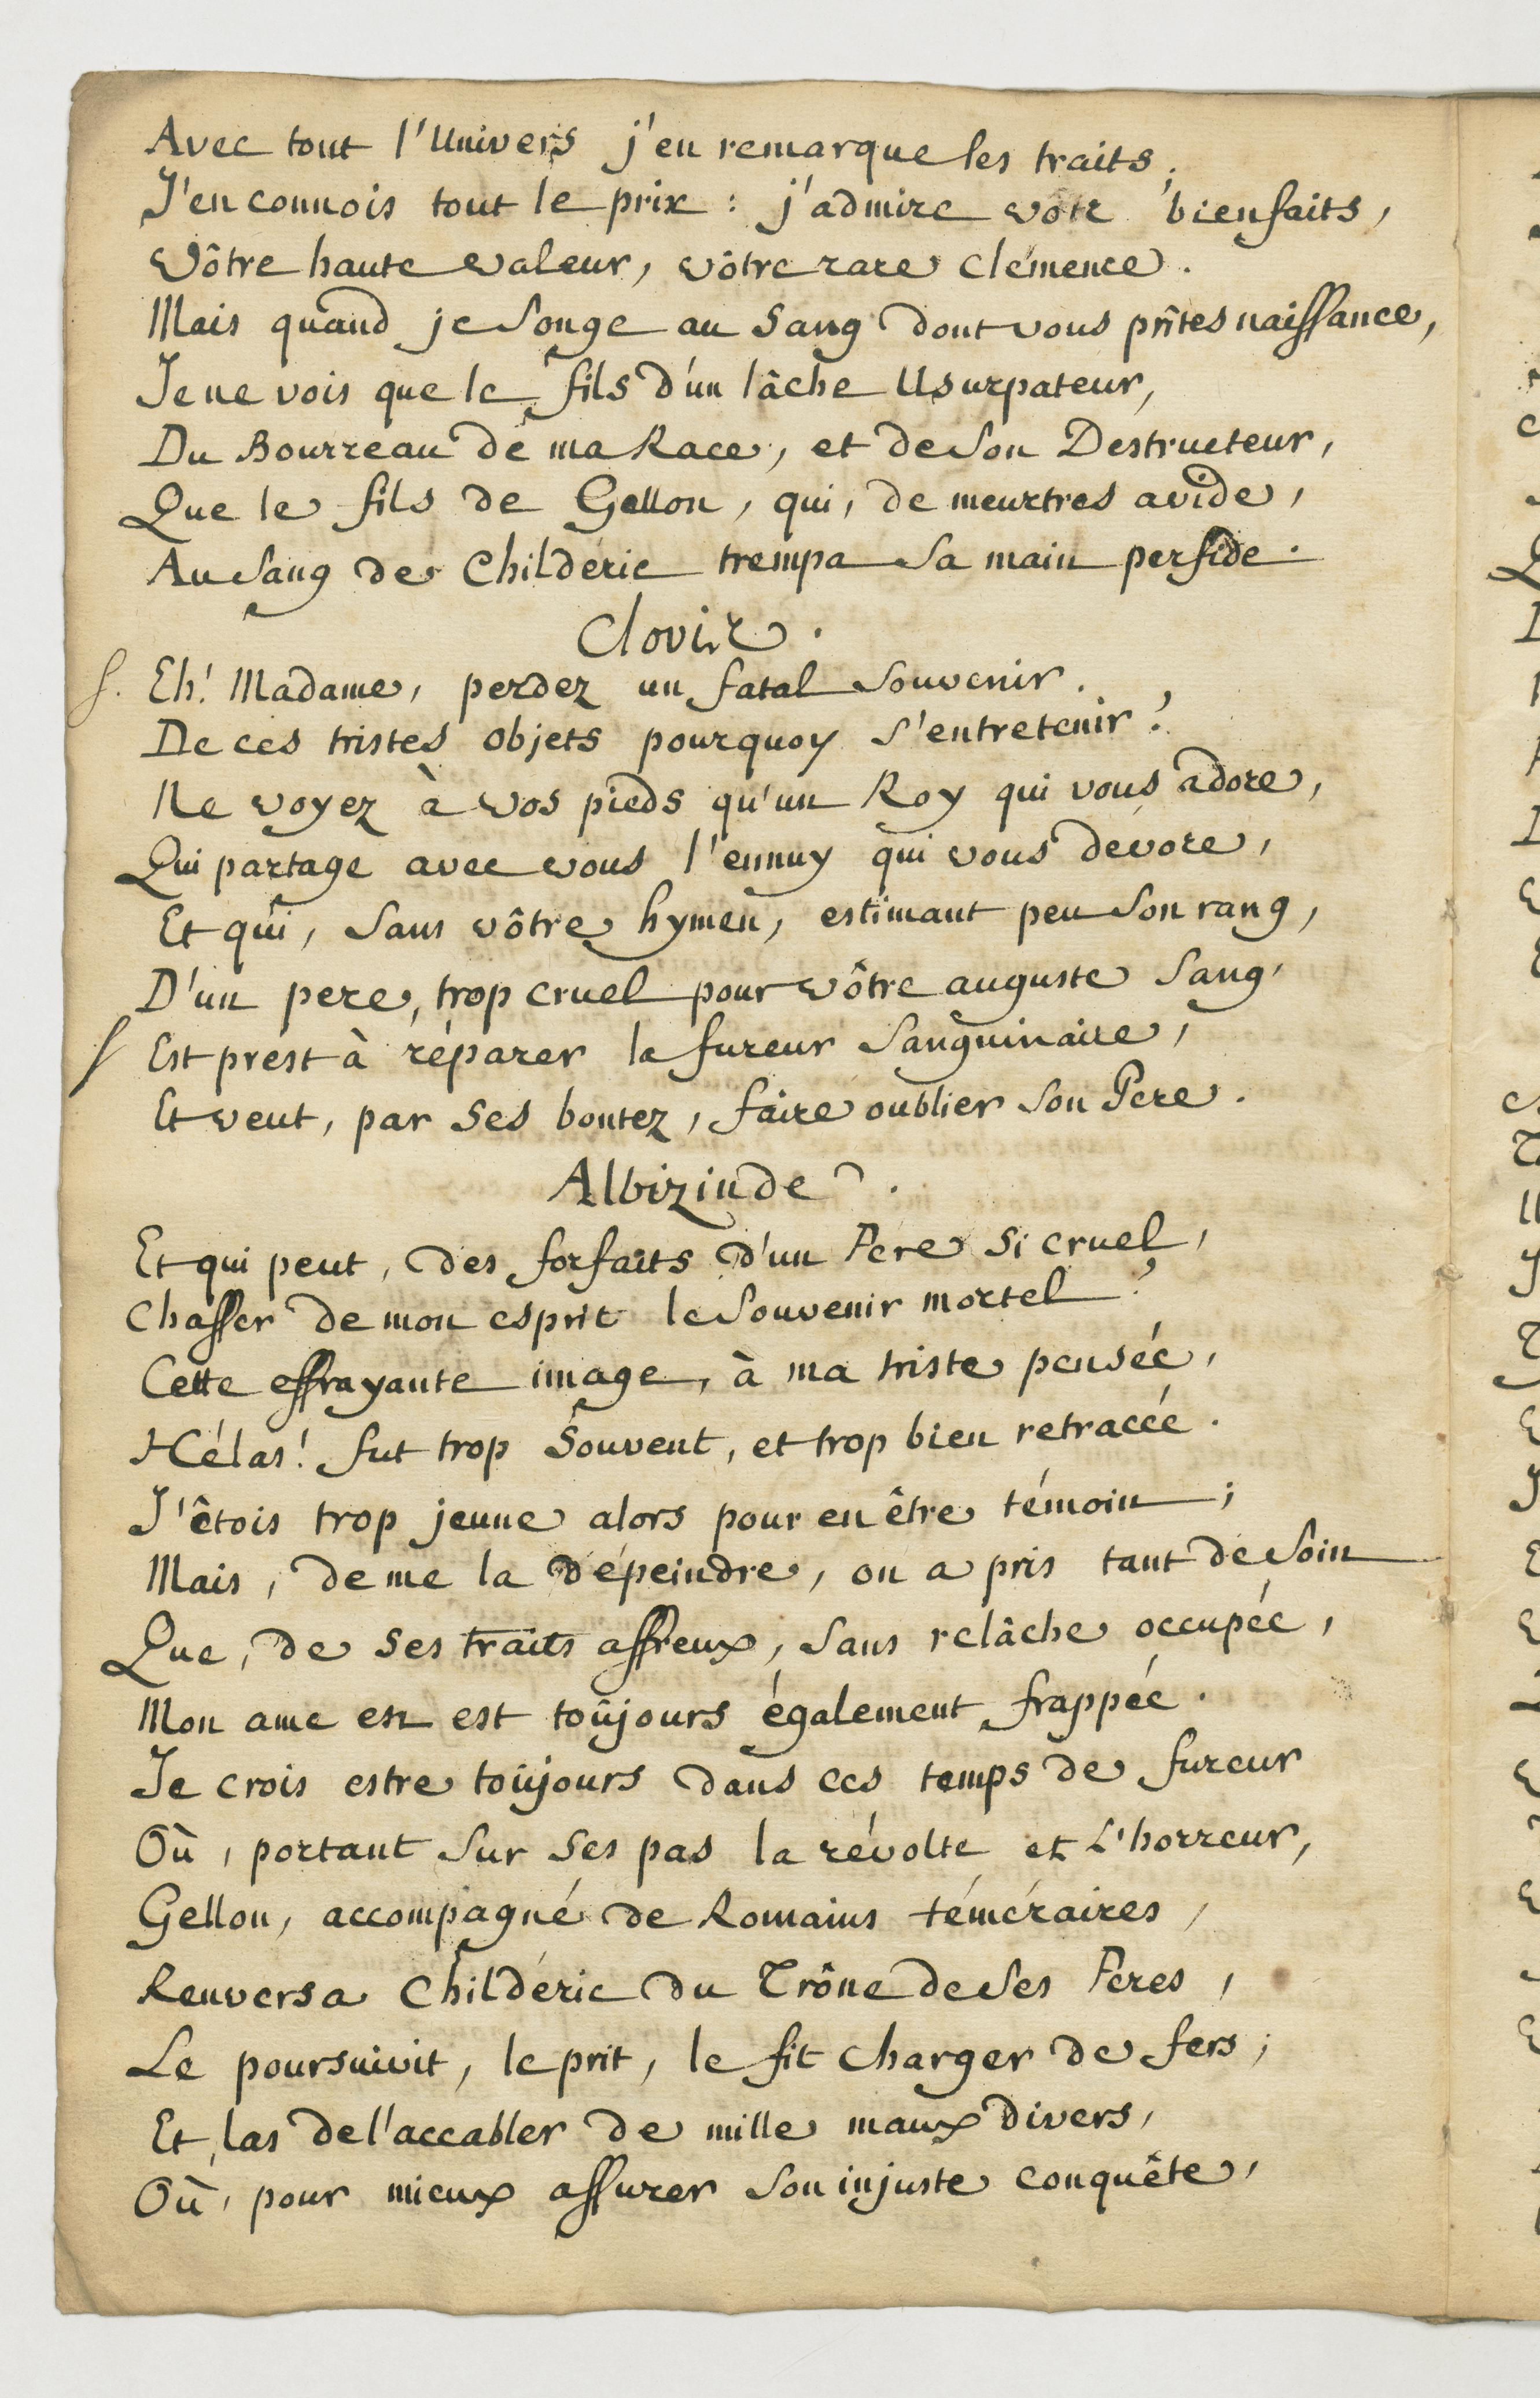 Avec tout l'Univers j'en remarque les traits;
J'en connois tout le prix: j'admire vos bienfaits,
Vôtre haute valeur, vôtre rare clémence.
Mais quand je songe au sang dont vous prîtes naissance,
Je ne vois que le fils d'un lâche Usurpateur,
Du Bourreau de ma Race, et de son Destructeur,
Que le fils de Gellon, qui, de meurtres avide,
Au sang de Childéric trempa sa main perfide.
Clovis.
Eh! Madame, perdez un fatal souvenir.
De ces tristes objets pourquoy s'entretenir?
Ne voyez à vos pieds qu'un Roy qui vous adore,
Qui partage avec vous l'ennuy qui vous dévore,
Et qui, sans vôtre hymen, estimant peu son rang,
D'un pere, trop cruel pour vôtre auguste sang,
Est prest à réparer la fureur sanguinaire,
Et veut, par ses bontez, faire oublier son Pere.
Albizinde.
Et qui peut, des forfaits d'un Pere si cruel,
Chasser de mon esprit le souvenir mortel?
Cette effrayante image, à ma triste pensée,
Hélas! fut trop souvent, et trop bien retracée.
J'êtois trop jeune alors pour en être témoin;
Mais, de me la dépeindre, on a pris tant de soin
Que, de ses traits affreux, sans relâche occupée,
Mon ame en est toûjours également frappée.
Je crois estre toûjours dans ces temps de fureur
Où, portant sur ses pas la révolte et l'horreur,
Gellon, accompagné de Romains téméraires,
Renversa Childéric du Trône de ses Peres,
Le poursuivit, le prit, le fit charger de fers;
Et, las de l'accabler de mille maux divers,
Où, pour mieux assurer son injuste conquête,